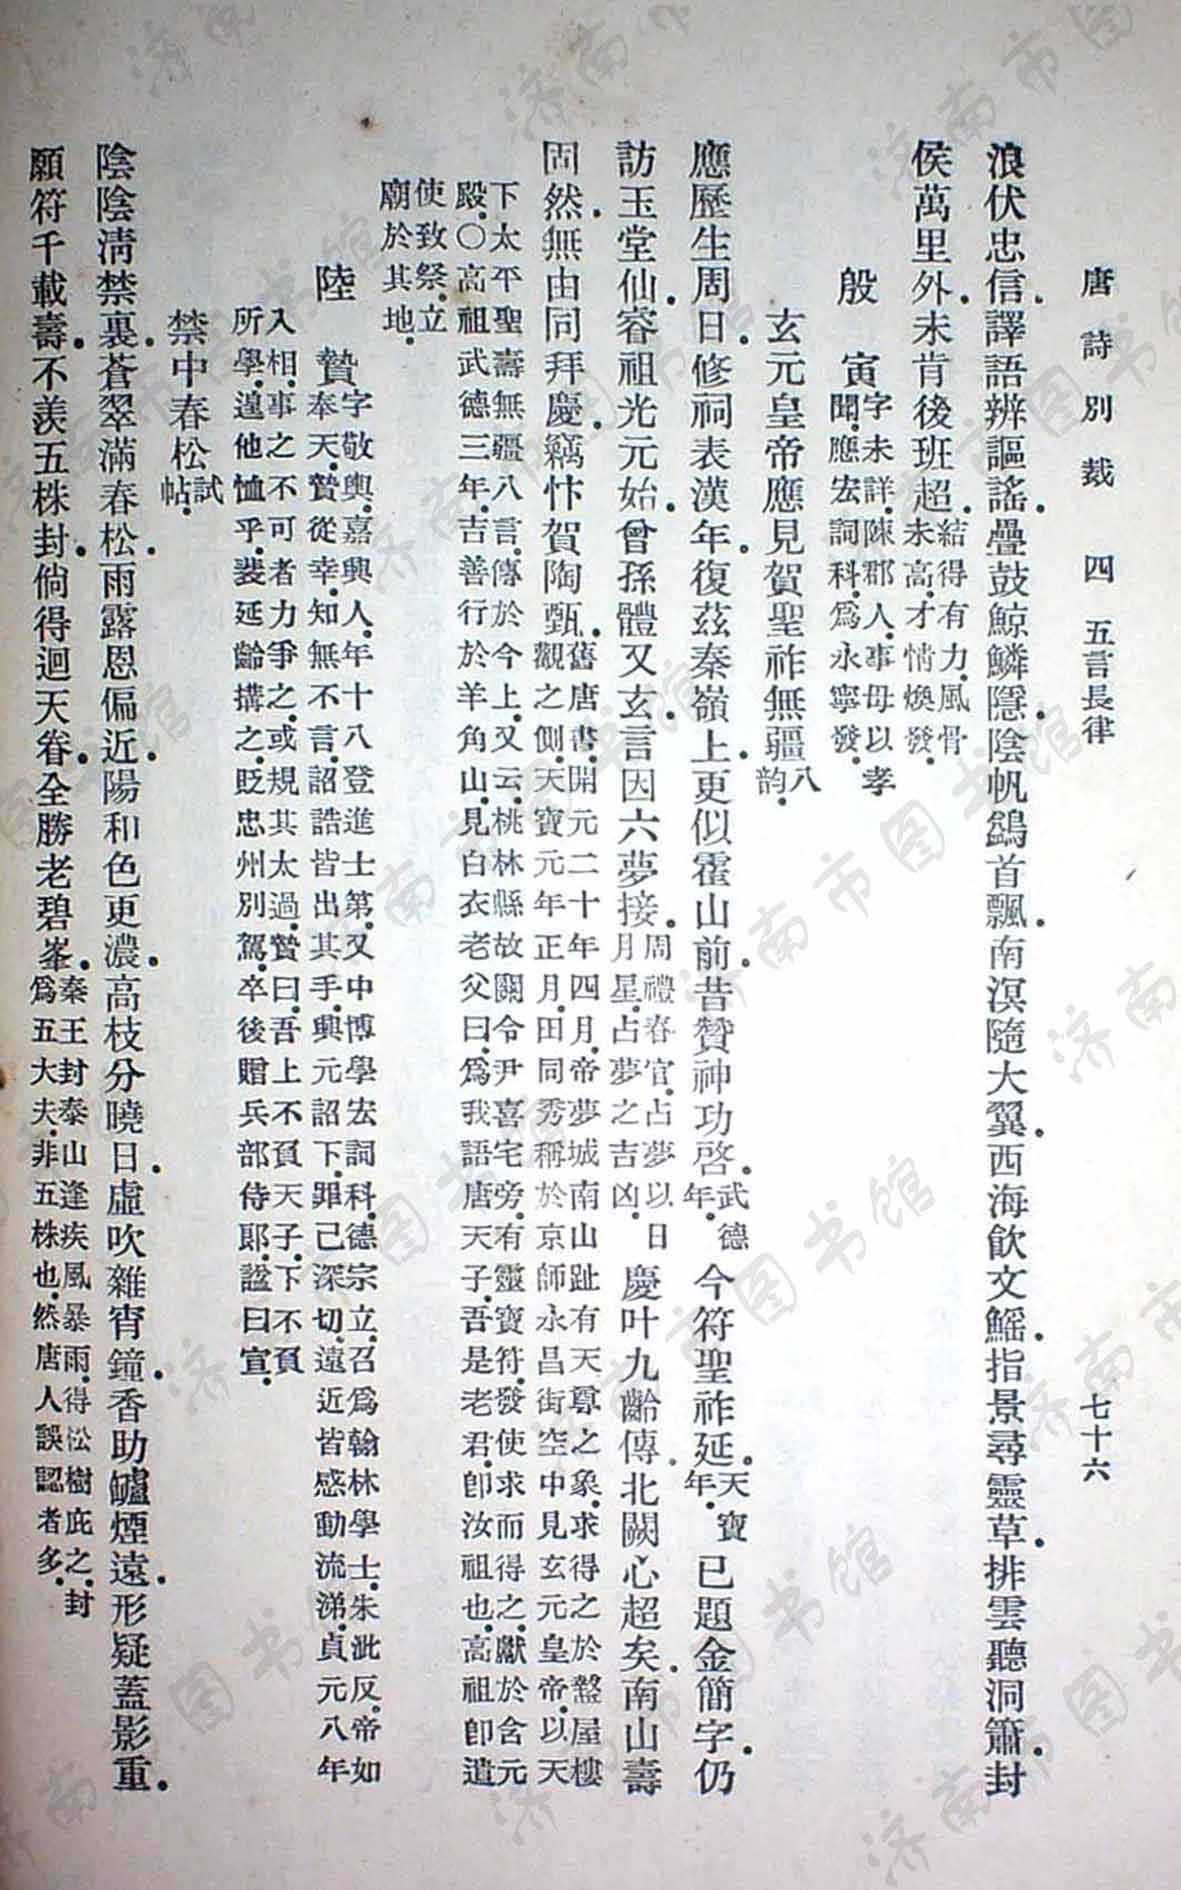 唐詩別裁 四 五言長律 七十六
浪伏忠信譯語辨謳謠疊鼓鯨鱗隱陰帆鷁首飄南溟隨大翼西海飲文鰩指景尋靈草排雲聽洞簫封
侯萬里外未肯後班超結得有力風骨未高才情煥發
殷寅字未詳陳郡人事母以孝聞應宏詞科爲永寧發
玄元皇帝應見賀聖祚無疆八韵
應歷生周日修祠表漢年復茲秦嶺上更似霍山前昔贊神功啓武德年今符聖祚延天寶年已題金簡字仍
訪玉堂仙睿祖光元始曾孫體又玄言因六夢接周禮春官占夢以日月星占夢之吉凶慶叶九齡傳北闕心超矣南山壽
固然無由同拜慶竊忭賀陶甄舊唐書開元二十年四月帝夢城南山趾有天尊之象求得之於盩屋樓觀之側天寶元年正月田同秀稱於京師永昌街空中見玄元皇帝以天
下太平聖壽無疆八言傳於今上又云桃林縣故關令尹喜宅旁有靈寶符發使求而得之獻於含元殿○高祖武德三年吉善行於羊角山見白衣老父曰爲我語唐天子吾是老君卽汝祖也高祖卽遣
使致祭立廟於其地
陸贄字敬輿嘉興人年十八登進士第又中博學宏詞科德宗立召爲翰林學士朱泚反帝如奉天贄從幸知無不言詔誥皆出其手興元詔下罪己深切遠近皆感動流涕貞元八年
入相事之不可者力爭之或規其太過贄曰吾上不負天子下不負所學遑他恤乎裴延齡搆之貶忠州別駕卒後贈兵部侍郞諡曰宣
禁中春松試帖
陰陰淸禁裏蒼翠滿春松雨露恩偏近陽和色更濃高枝分曉日虛吹雜宵鐘香助鑪煙遠形疑蓋影重
願符千載壽不羨五株封倘得迴天眷全勝老碧峯秦王封泰山逢疾風暴雨得松樹庇之封爲五大夫非五株也然唐人誤認者多